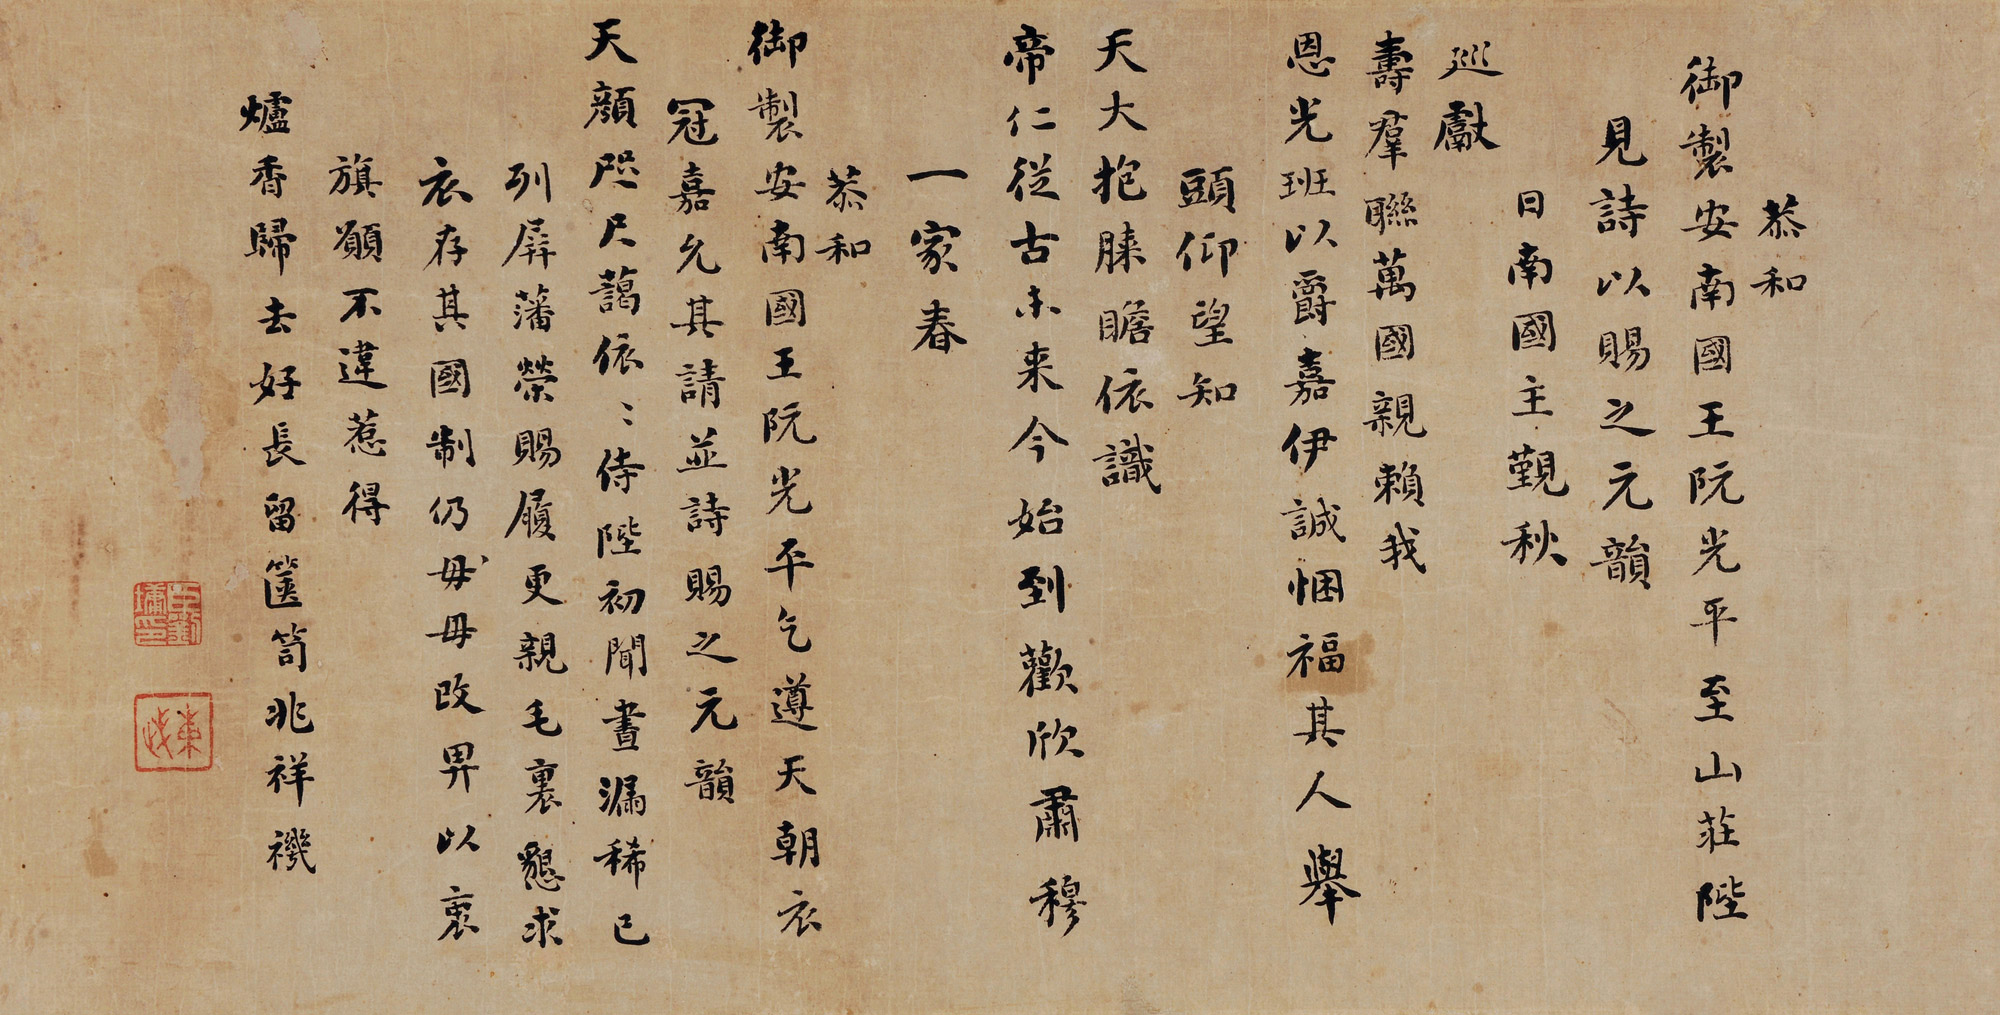 恭和
御製安南國王阮光平至山莊陛
見詩以賜之元韻
日南國主覲秋
巡獻
壽羣聯萬國親賴我
恩光班以爵嘉伊誠悃福其人舉
頭仰望知
天大抱膝瞻依識
帝仁從古未来今始到歡欣肅穆
一家春
恭和
御製安南國王阮光平乞遵天朝衣
冠嘉允其請並詩賜之元韻
天顏咫尺藹依〻侍陛初聞晝漏稀已
列屏藩榮賜履更親毛裏懇求
衣存其國制仍毋毋改畀以衷
旗願不違惹得
爐香歸去好長留篋笥兆祥禨
臣劉墉印
東武